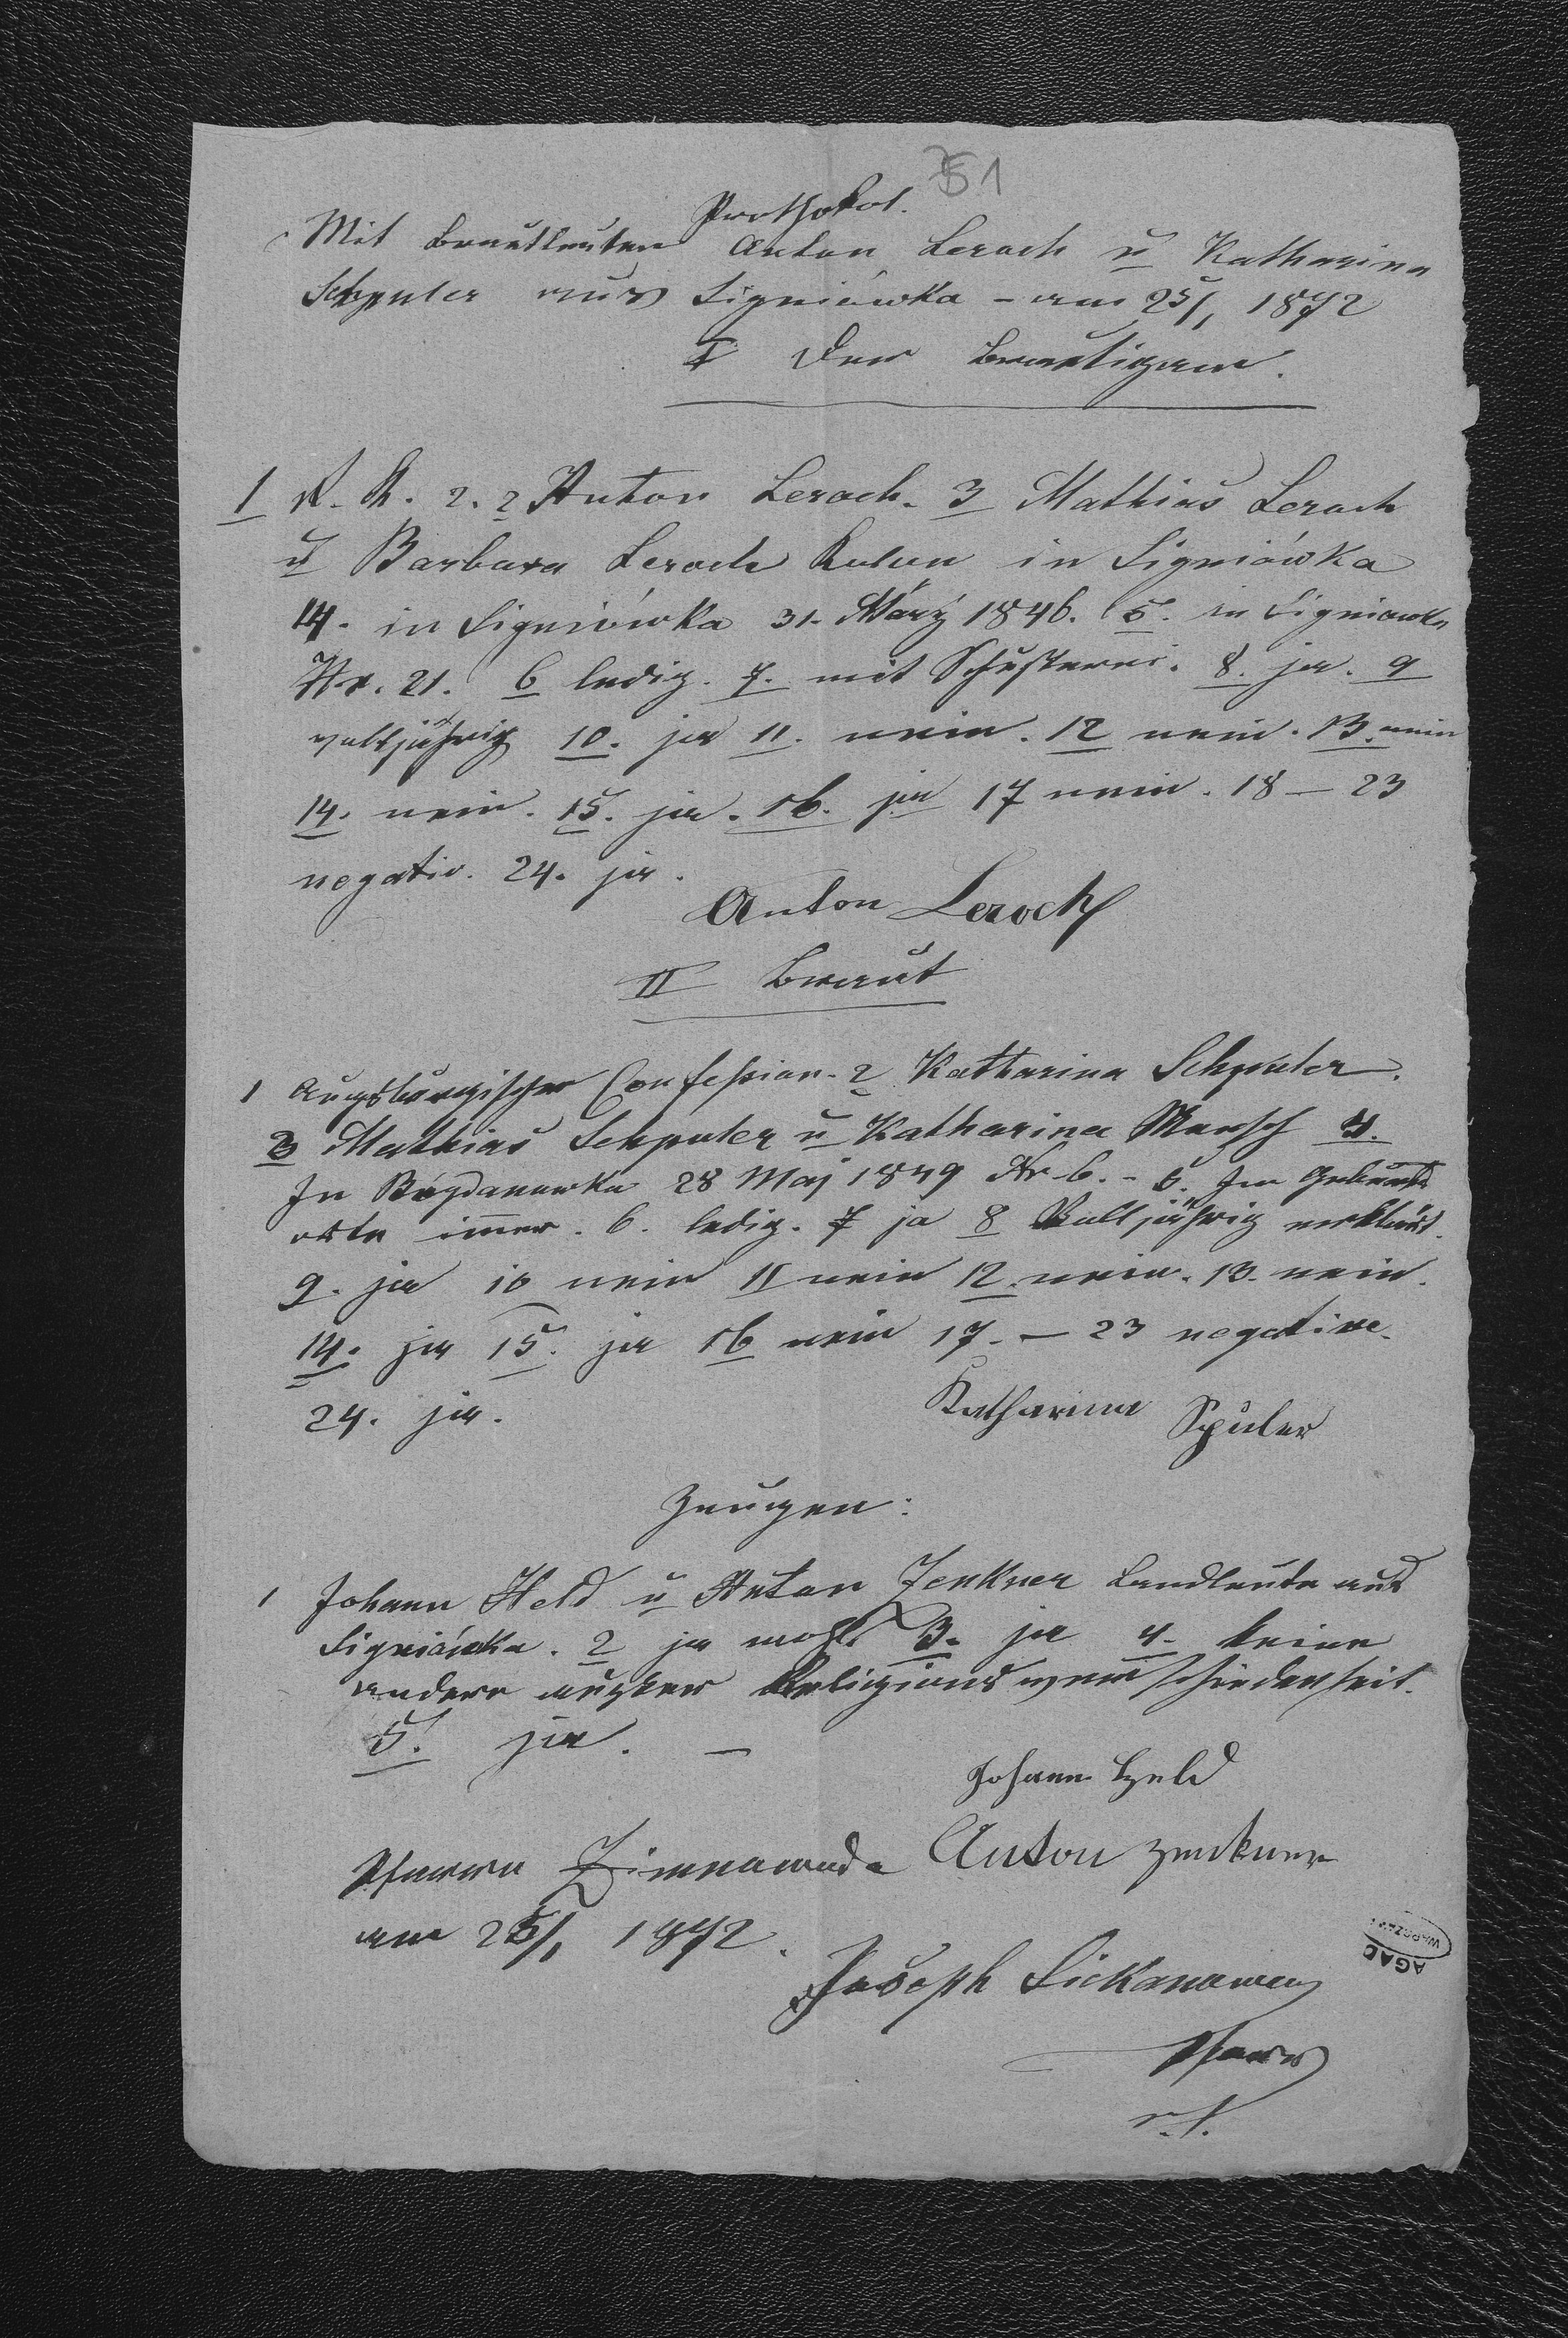 51
Prothokol.
Mit Brautleuten Anton Leroch u Katharina
Schpuler aus Signiówka - am 25/1 1872
I Der Brautigam.
1 R. K. 2. 2 Anton Leroch. 3 Mathias Leroch
u Barbara Leroch in Signiówka
4. in Signiówka 31. März 1846. 5. in Signiowka
Nr. 21. 6 ledig. 7. mit Schusterei. 8. ja. 9
volljährig 10. ja 11. nein. 12 nein. 13. nein
14. nein. 15. ja. 16. ja 17 nein. 18 — 23
negativ. 24. ja.
Anton Leroch
II Braut
1 Augsburgischer Confession. 2 Katharina Schpuler.
3 Mathias Schpuler u Katharina Mensch 4.
In Bogdanowka 28 Maj 1849 Nr 6. - 5. Im Geburts
orte immer. 6. ledig. 7 ja 8 Volljährig erklärt.
9. ja 10 nein 11 nein 12. nein. 13. nein.
14. ja 15. ja 16 nein 17. — 23 negative.
24. ja.
Katharina Spuler
Zeugen:
1 Johann Held u Anton Zenkner Landleute aus
Signiówka. 2 ja wohl 3. ja 4. keine
andere außer Religionsverschiedenheit.
5. ja. —
Johann Held
Pfarre Zimnawoda Anton Zenkner
am 25/1 1872.
Joseph
Pfarr
AGAD
WARSZAWA